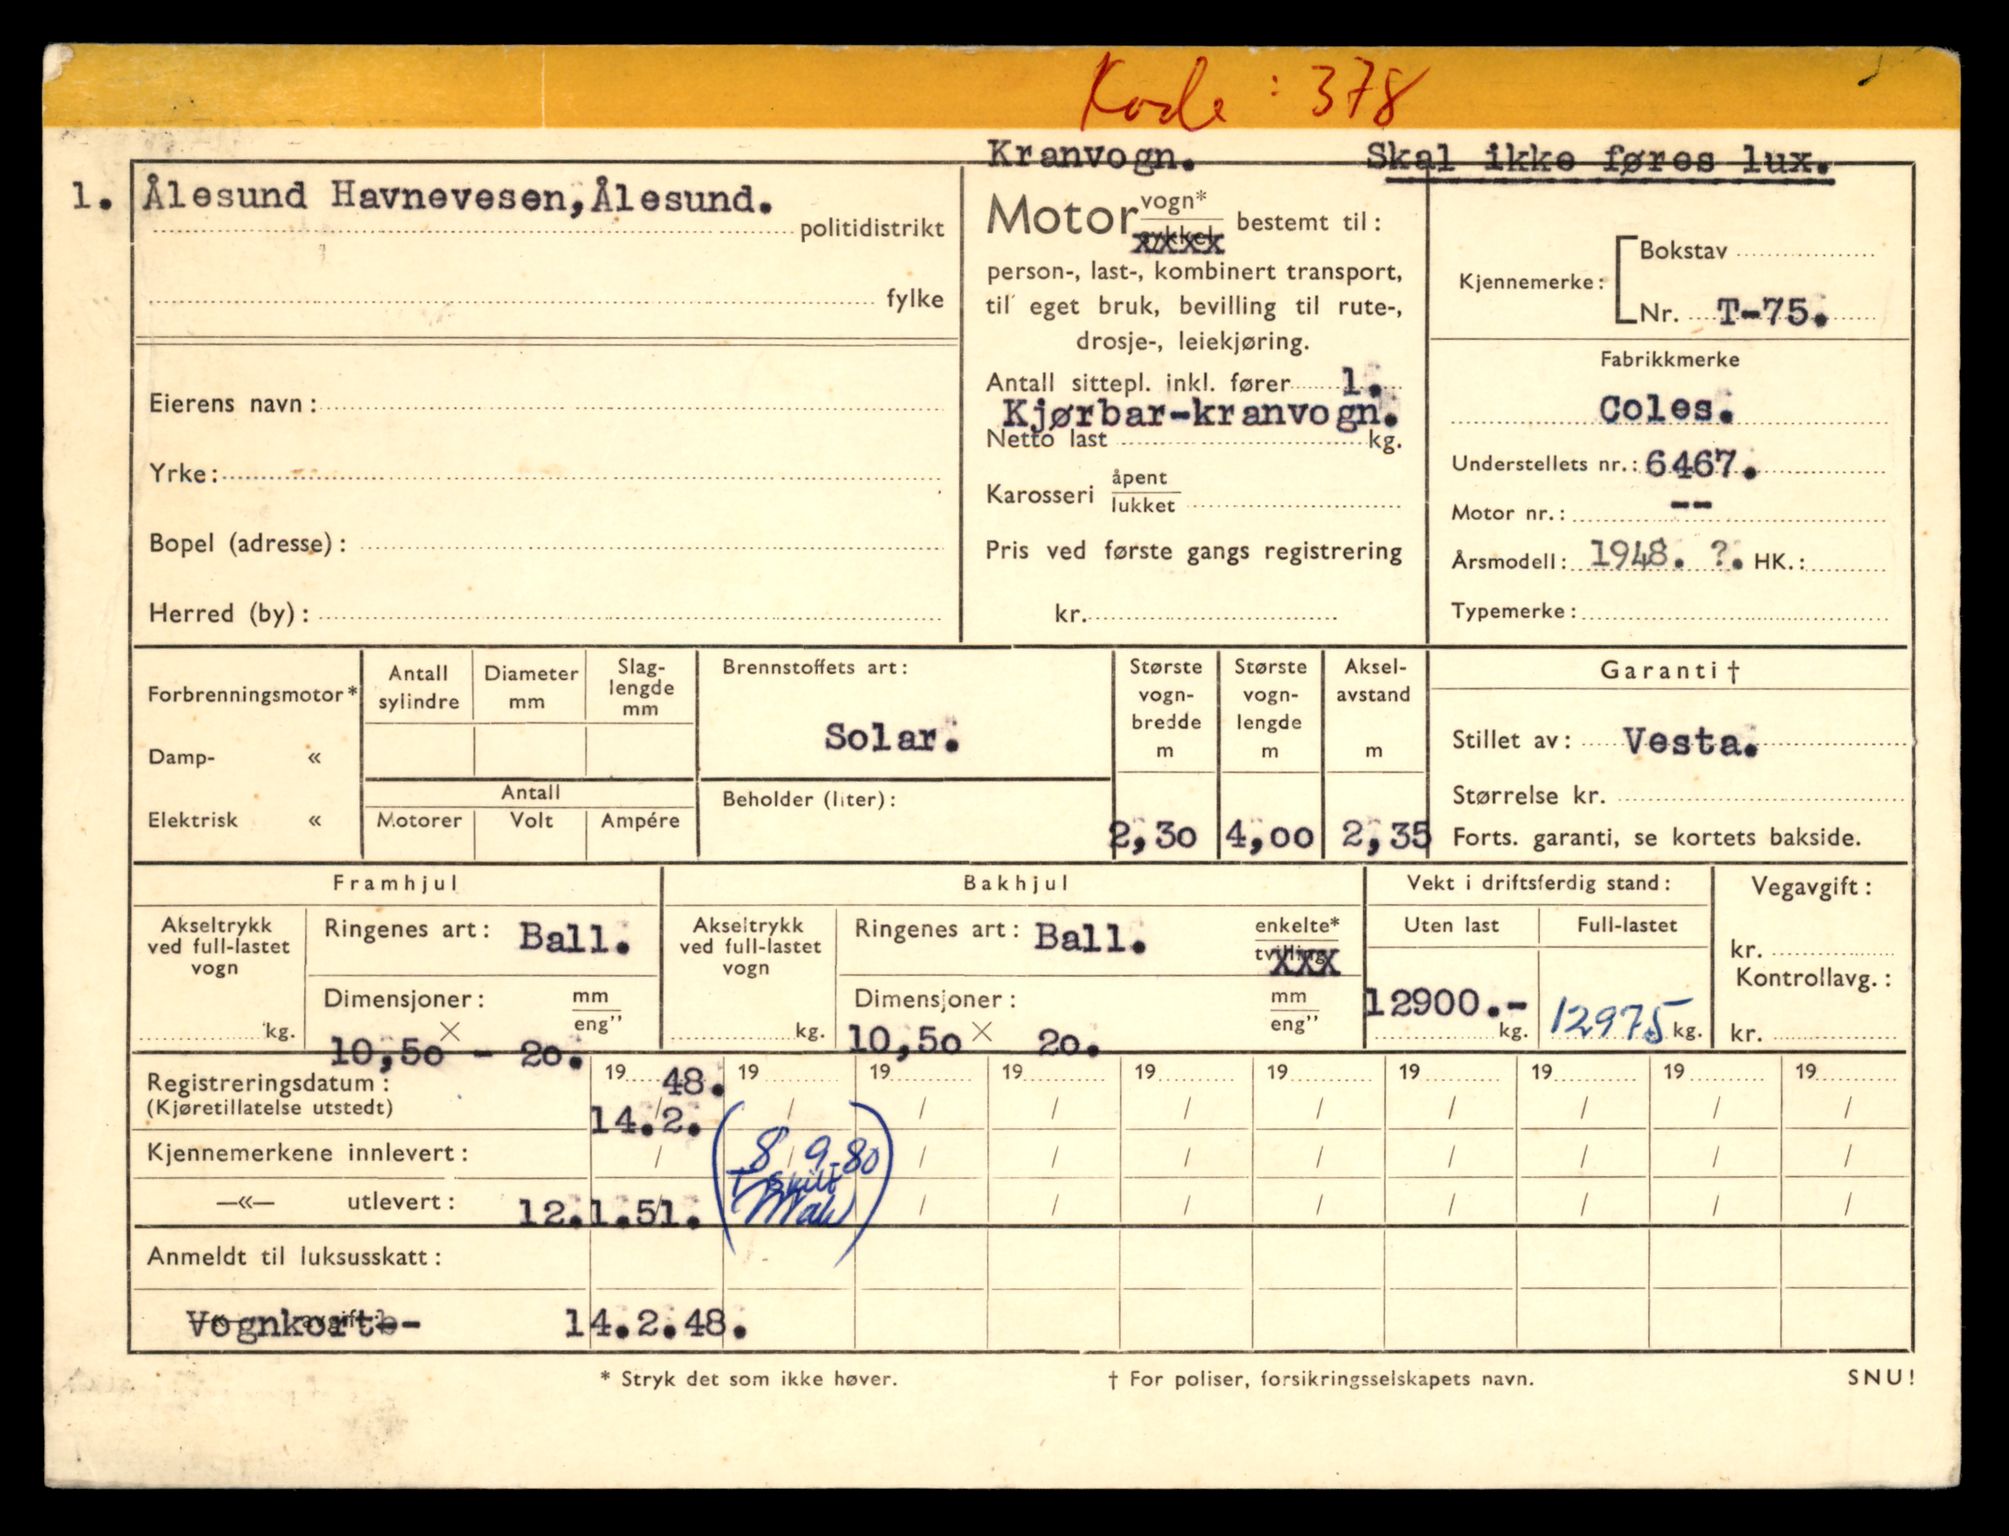 Kode : 378
Kranvogn. Skal ikke føres lux.
1. Ålesund Havnevesen, Ålesund.
politidistrikt
fylke
Eierens navn:
Yrke:
Bopel (adresse):
Herred (by):
Motor vogn*
bestemt til:
person-, last-, kombinert transport,
til eget bruk, bevilling til rute-,
drosje-, leiekjøring.
Antall sittepl. inkl. fører 1.
Kjørbar-kranvogn.
Netto last kg.
Karosseri åpent
lukket
Pris ved første gangs registrering
kr.
Kjennemerke: Bokstav
Nr. T-75.
Fabrikkmerke
Coles.
Understellets nr.: 6467.
Motor nr.: --
Årsmodell: 1948. ?. HK.:
Typemerke:
Forbrenningsmotor*
Damp- «
Elektrisk «
Antall sylindre
Diameter mm
Slag-
lengde
mm
Antall
Motorer Volt Ampére
Brennstoffets art:
Solar.
Beholder (liter):
Største
vogn-
bredde
m
2,30
Største
vogn-
lengde
m
4,00
Aksel-
avstand
m
2,35
Garanti †
Stillet av: Vesta.
Størrelse kr.
Forts. garanti, se kortets bakside.
Framhjul
Akseltrykk
ved full-lastet
vogn
kg.
Ringenes art: Ball.
Dimensjoner: mm
eng"
10,50 × - 20.
Bakhjul
Akseltrykk
ved full-lastet
vogn
kg.
Ringenes art: Ball. enkelte*
tvilling
Dimensjoner: mm
eng"
10,50 × 20.
Vekt i driftsferdig stand:
Uten last Full-lastet
12900.- kg. 12975 kg.
Vegavgift:
kr.
Kontrollavg.:
kr.
Registreringsdatum:
(Kjøretillatelse utstedt)
19 48. 19 19 19 19 19 19 19 19 19
14.2. / / / / / / / / /
Kjennemerkene innlevert: / (8/9-80 / / / / / / / /
T skilt
—«— utlevert: 12.1.51. ) / / / / / / / /
Anmeldt til luksusskatt:
Vognkort 14.2.48.
* Stryk det som ikke høver. † For poliser, forsikringsselskapets navn. SNU!